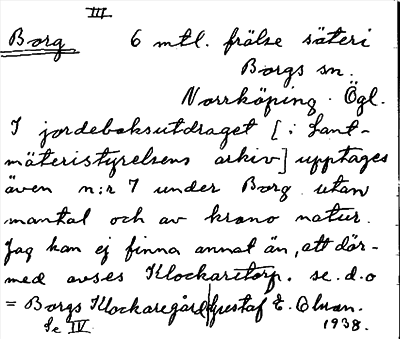 III
Borg 6 mtl. frälse säteri
Borgs sn.
Norrköping. Ögl.
I jordeboksutdraget [i Lant-
mäteristyrelsens arkiv] upptages
även n:r 7 under Borg utan
mantal och av krono natur.
Jag kan ej finna annat än, att där-
med avses Klockaretorp. se. d.o
= Borgs Klockaregård Gustaf E. Olson.
Se IV. 1938.